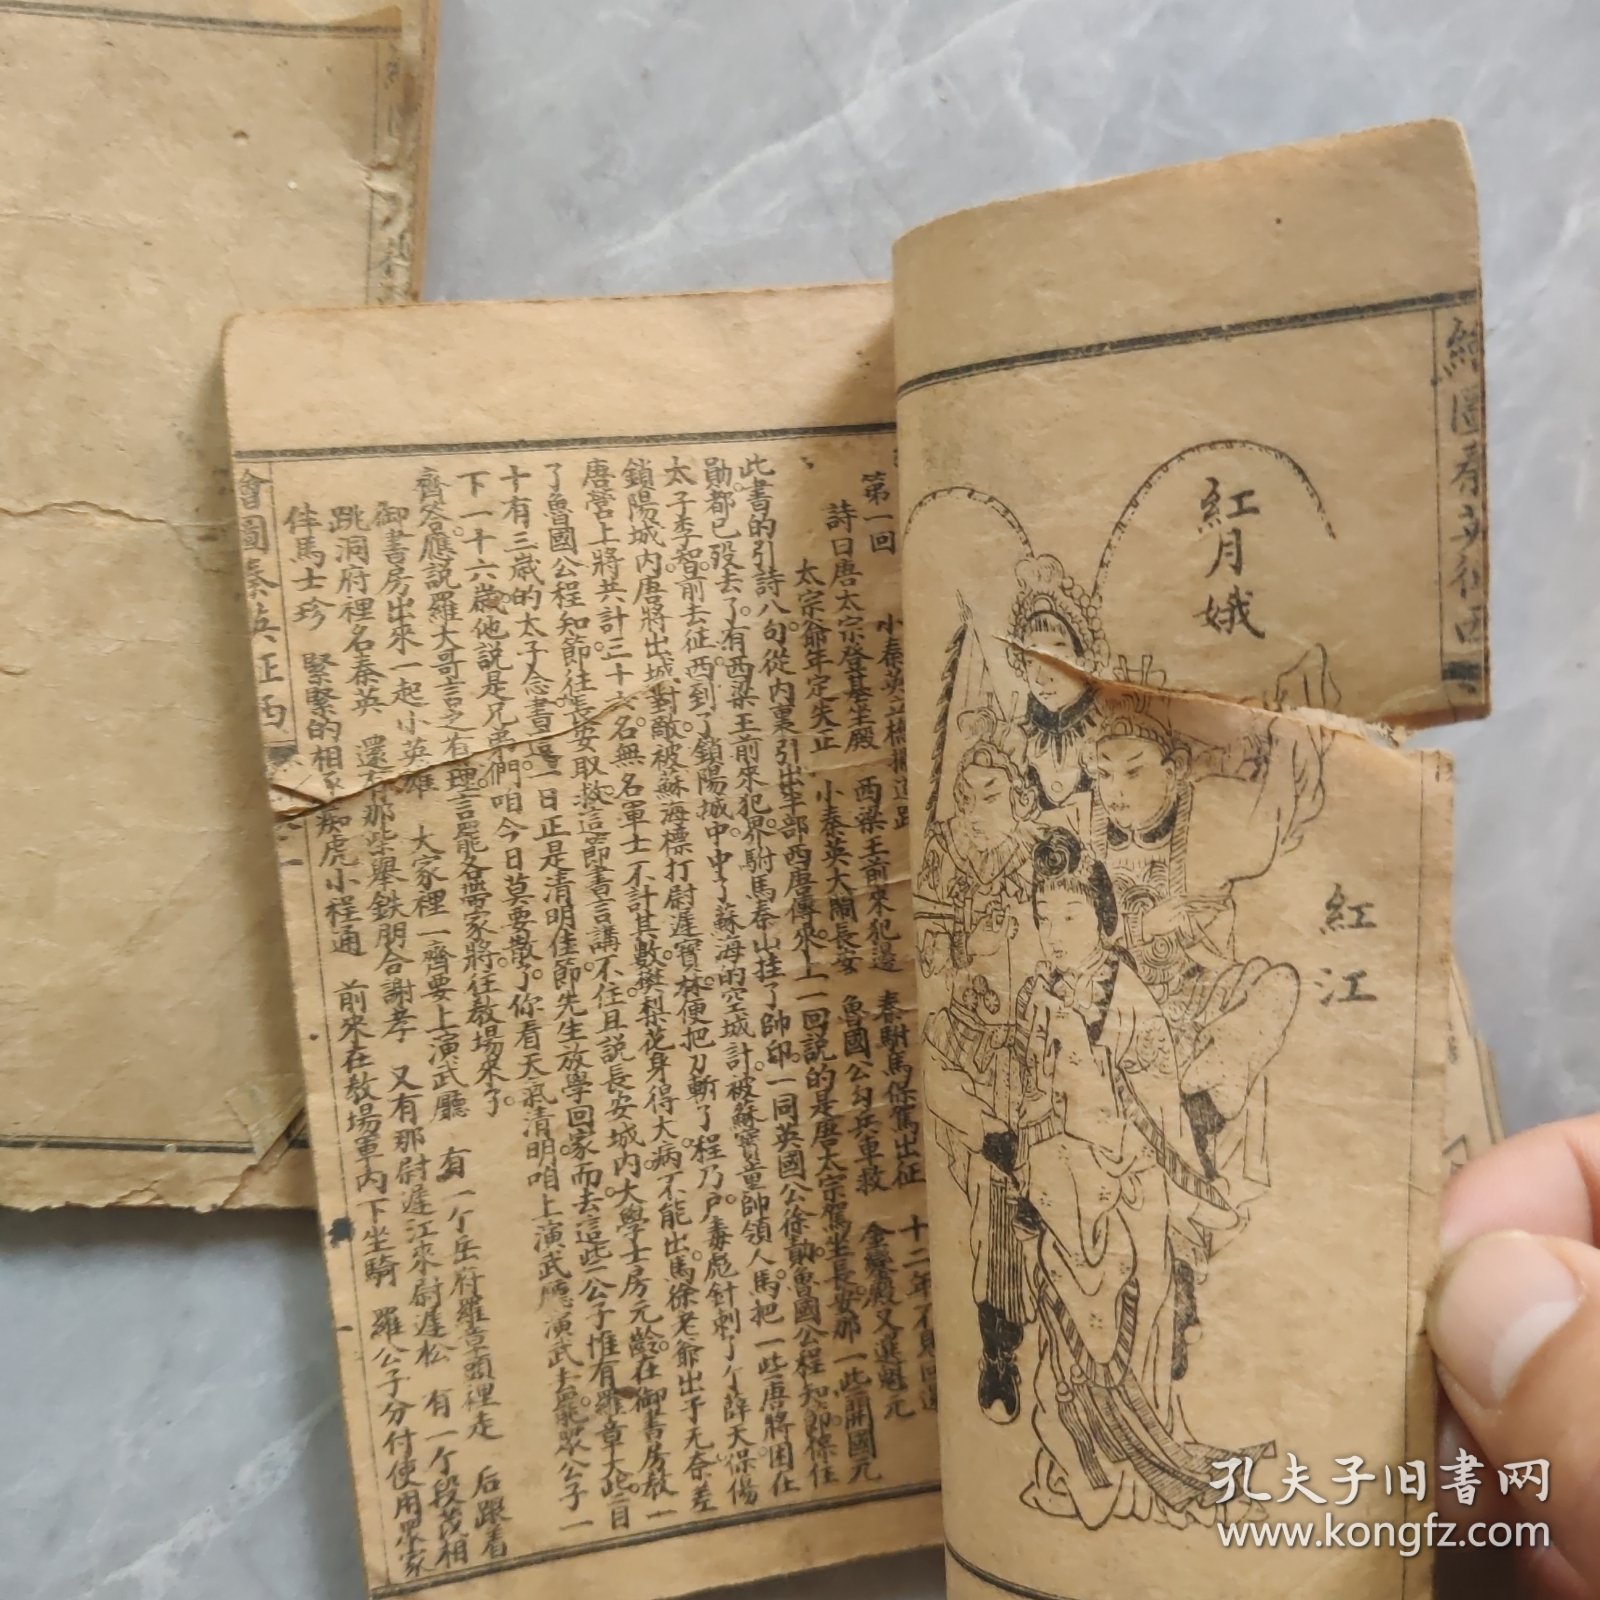 繪圖秦英征西
紅月娥
紅江
第一回
小秦英立橋
詩曰唐太宗登基坐殿 西梁王前來犯邊 秦駙馬保駕出征 十二年不
太宗爺年定失正 小秦英大鬧長安 魯國公勾兵車救 金鑾殿又選魁元
此書的引詩八句從內裏引出半部西唐傳來上一回說的是唐太宗駕坐長安那一些開國元
勛都已歿去了有西梁王前來犯界駙馬秦山挂了帥印一同英國公徐勣魯國公程知節保住
太子李智前去征西到了鎖陽城中中了蘇海的空城計被蘇寶童帥領人馬把一些唐將困在
鎖陽城內唐將出城對敵被蘇海標打尉遲寶林便把刀斬了程乃戶毒彪針刺了个薛天保傷
唐營上將共計三十六名無名軍士不計其數樊梨花身得大病不能出馬徐老爺出于无奈差
了魯國公程知節往長安取救這節書言講不住且說長安城內大學士房元齡在御書房教一
十有三歲的太子念書這一日正是清明佳節先生放學回家而去這些公子惟有羅章大此二目
下一十六歲他說是兄弟們咱今日莫要散了你看天氣清明咱上演武廳演武去罷眾公子一
齊答應說羅大哥言之有理言罷各帶家將往教場來了
御書房出來一起小英雄 大家裡一齊要上演武廳 有一个岳府羅章頭裡走 后跟着
跳洞府裡名秦英 還有那些舉鉄朋合謝孝 又有那尉遲江來尉遲松 有一个段茂相
伴馬士珍 緊緊的相 痴虎小程通 前來在教場軍內下坐騎 羅公子分付使用眾家
會圖秦英征西
一
孔夫子旧书网
www.kongfz.com